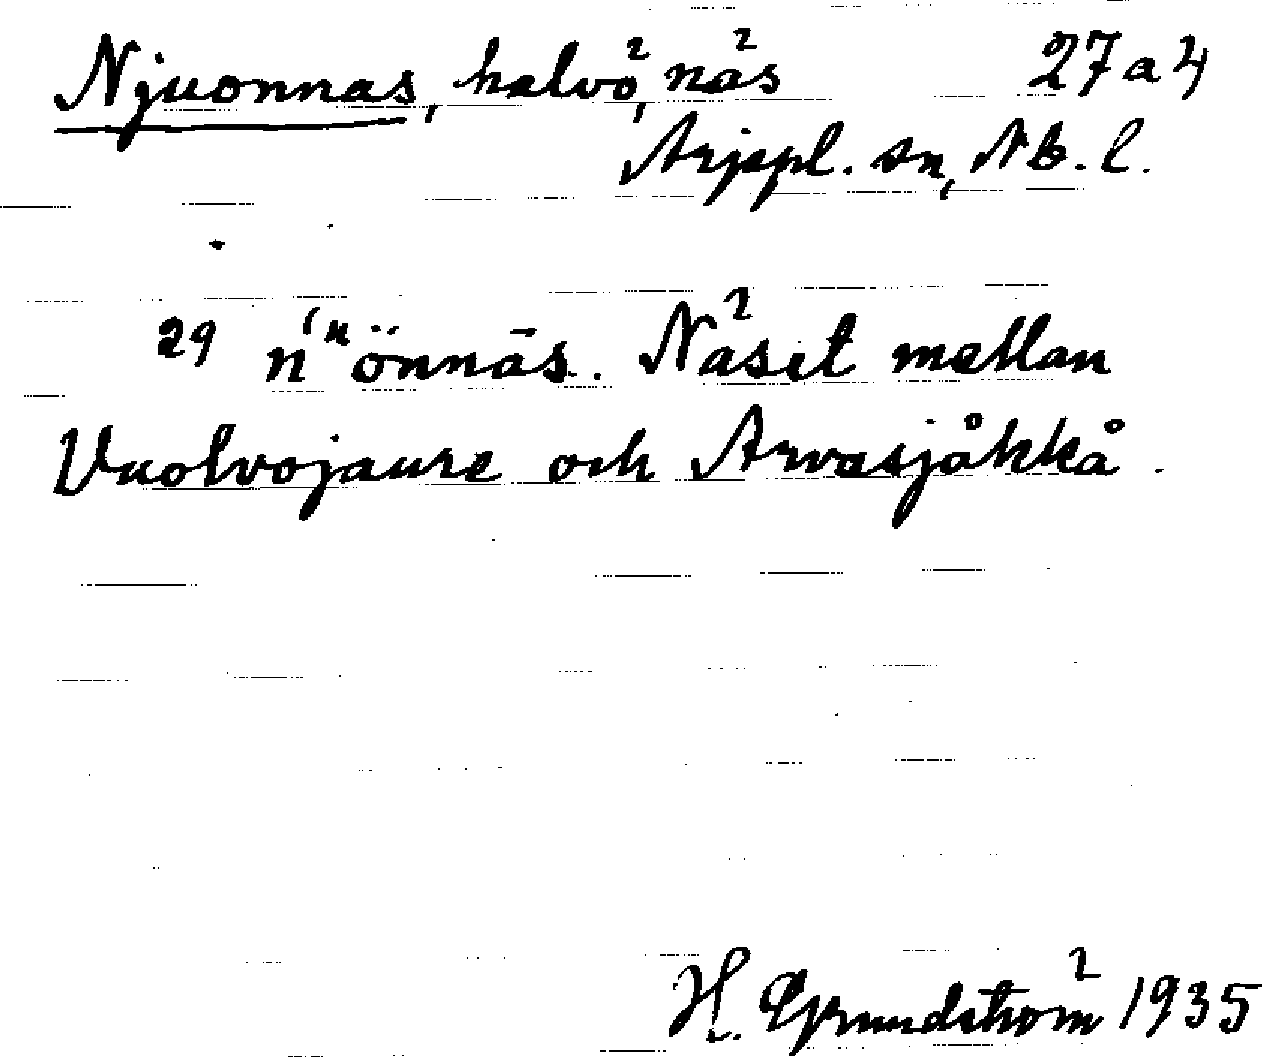 Njuonnas, halvö, näs 27a4
Arjepl. sn, Nb. l.
29 ń ᵘönnās. Näset mellan
Vuolvojaure och Arvasjåkkå.
H. Grundström 1935